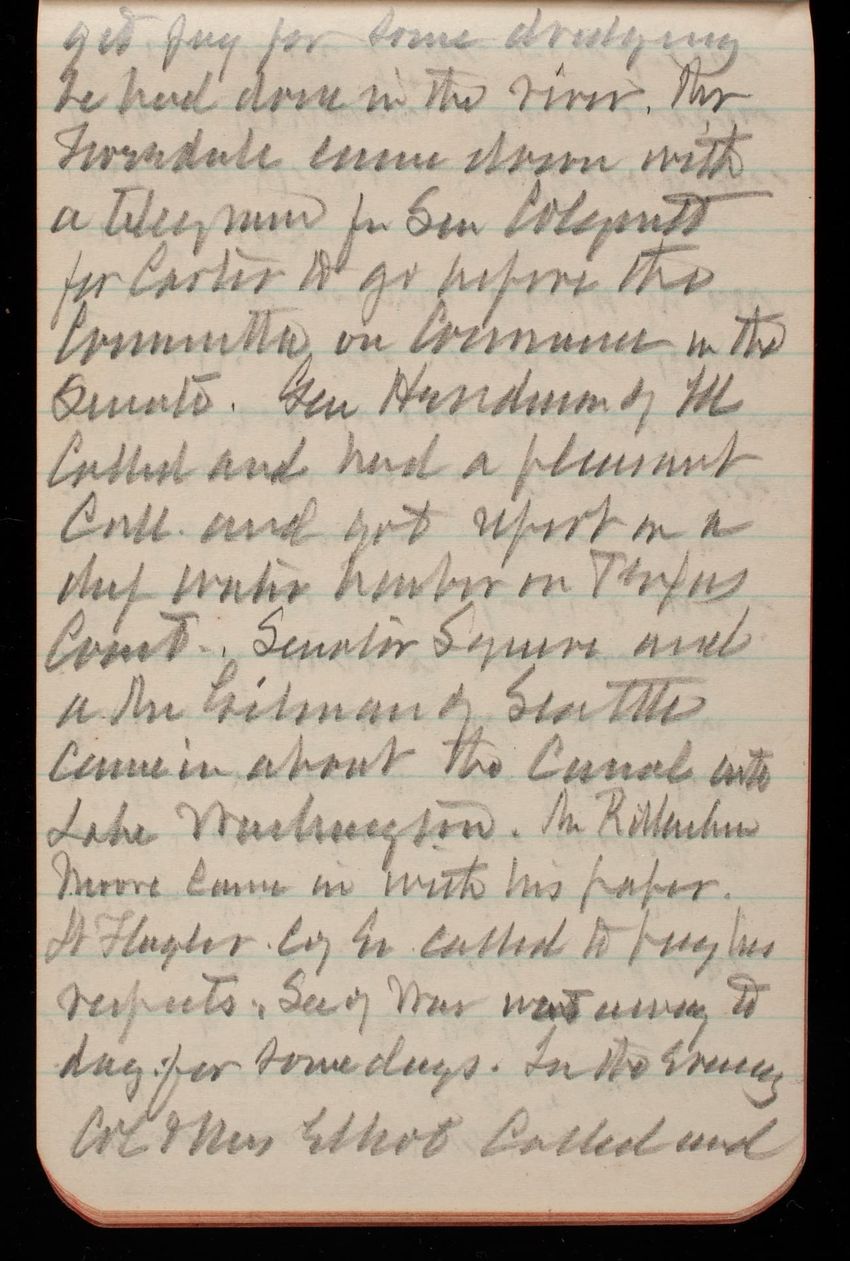 get pay for some dredging
he had done in the river. Mr
came down with
a telegram fr Sen Colquitt
for Carter to go before the
Committee on Commerce in the
Senate. Gen Henderson of Ill
Called and had a pleasant
Call. and got report on a
deep water harbor on Texas
Coast. Senator Squire and
a Mr Gilman of Seattle
came in about the Canal into
Lake Washington. Mr
Moore came in with his paper.
Lt Flagler Cog Er called to pay his
respects. Sec of War went away to
day for some days. In the Evening
Col & Mrs Elliot Called and